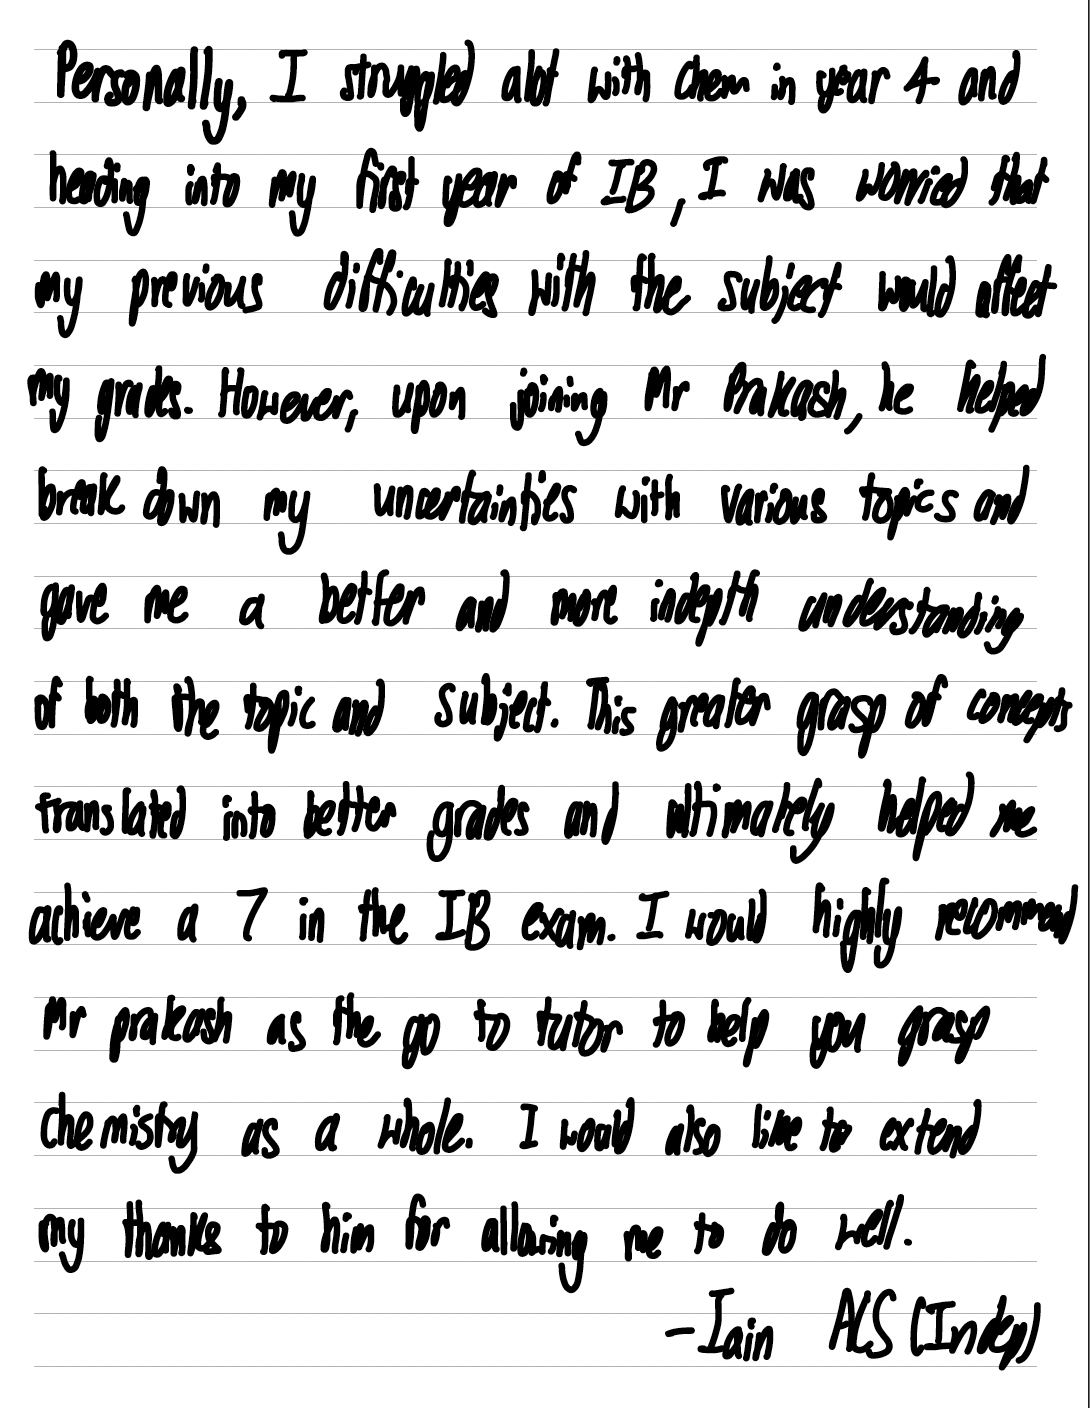 Personally, I struggled alot with chem in year 4 and
heading into my first year of IB, I was worried that
my previous difficulties with the subject would affect
my grades. However, upon joining Mr Prakash, he helped
break down my uncertainties with various topics and
gave me a better and more indepth understanding
of both the topic and subject. This greater grasp of concepts
translated into better grades and ultimately helped me
achieve a 7 in the IB exam. I would highly recommend
Mr prakash as the go to tutor to help you grasp
chemistry as a whole. I would also like to extend
my thanks to him for allowing me to do well.
-Iain ACS (Indep)